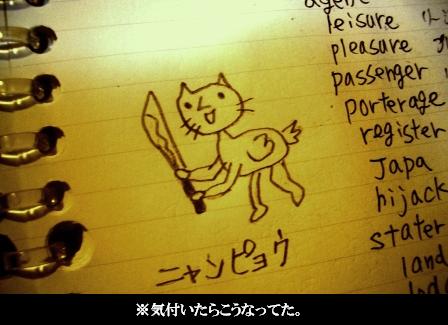 leisure
pleasure
passenger
porterage
register
Japa
hijack
stater
land
3
ニャンピョウ
※気付いたらこうなってた。